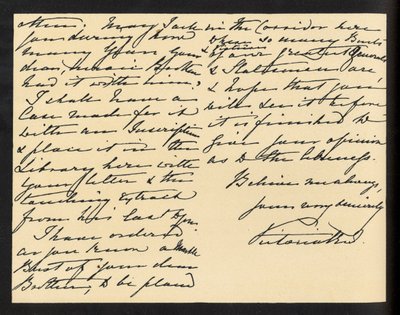 them. Many
for during how
many years your
dear, heroic Brother
had it with him?
I shall have a
Case made for it
with an Inscription
& place it in the
Library here with
your letter & the
touching extract
from his last to you.
I have ordered
as you know a Marble
Bust of your dear
Brother, to be placed
in the Corridor here
where so many Busts
& Pictures of our greatest Generals
& Statesmen are,
& hope that you
will see it before
it is finished to
give your opinion
as to the likeness.
Believe me always,
yours very sincerely
Victoria RI